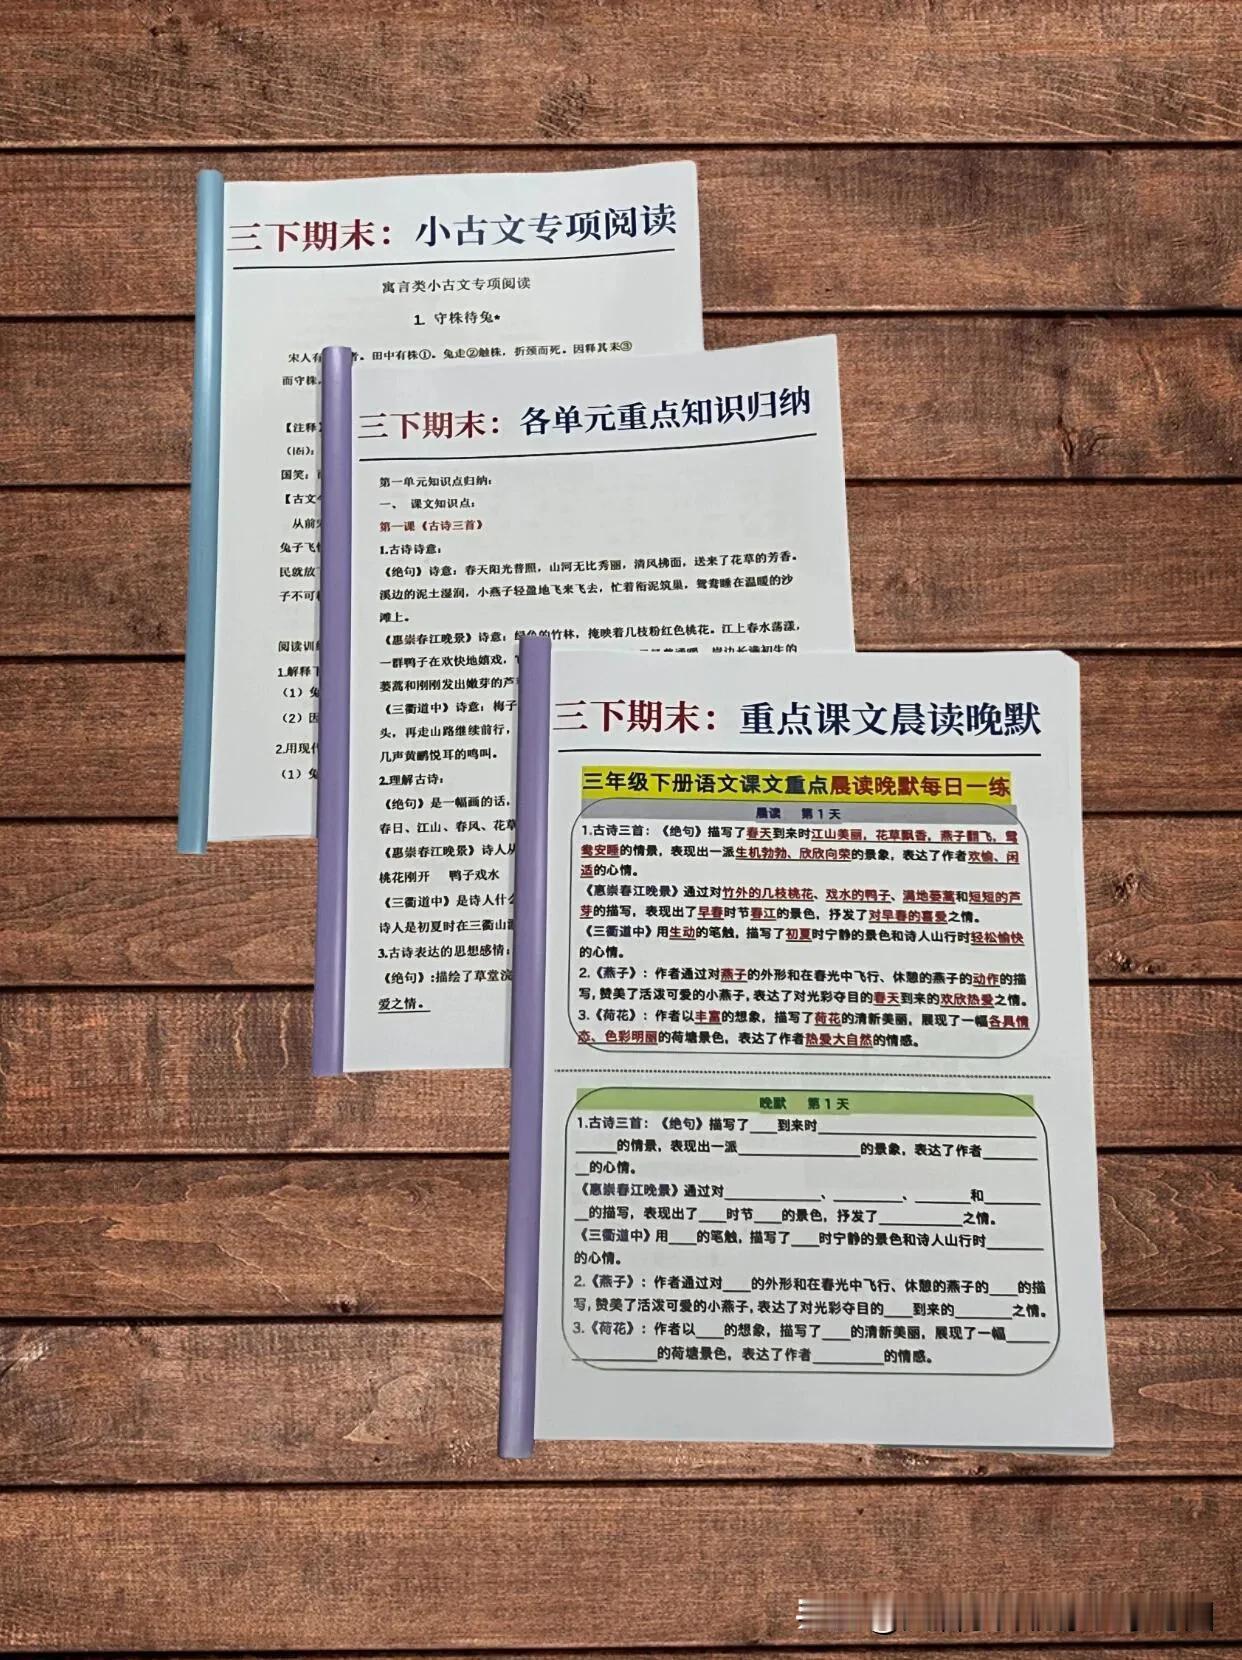 三下期末：小古文专项阅读
寓言类小古文专项阅读
1. 守株待兔*
宋人有 者。田中有株①。兔走②触株，折颈而死。因释其耒③
而守株，
【注释】
国笑：
【古文
从前
兔子飞
民就放
子不可
阅读训
1.解释
（1）兔
（2）因
2.用现代
（1）兔
三下期末：各单元重点知识归纳
第一单元知识点归纳：
一、 课文知识点：
第一课《古诗三首》
1.古诗诗意：
《绝句》诗意：春天阳光普照，山河无比秀丽，清风拂面，送来了花草的芳香。
溪边的泥土湿润，小燕子轻盈地飞来飞去，忙着衔泥筑巢，鸳鸯睡在温暖的沙
滩上。
《惠崇春江晚景》诗意：绿色的竹林，掩映着几枝粉红色桃花。江上春水荡漾，
一群鸭子在欢快地嬉戏， 岸边长满初生的
蒌蒿和刚刚发出嫩芽的芦
《三衢道中》诗意：梅子
头，再走山路继续前行，
几声黄鹂悦耳的鸣叫。
2.理解古诗：
《绝句》是一幅画的话，
春日、江山、春风、花草
《惠崇春江晚景》诗人从
桃花刚开 鸭子戏水
《三衢道中》是诗人什么
诗人是初夏时在三衢山
3.古诗表达的思想感情：
《绝句》:描绘了草堂浣
爱之情。
三下期末：重点课文晨读晚默
三年级下册语文课文重点晨读晚默每日一练
晨读 第1天
1.古诗三首：《绝句》描写了春天到来时江山美丽，花草飘香，燕子翻飞，鸳
鸯安睡的情景，表现出一派生机勃勃、欣欣向荣的景象，表达了作者欢愉、闲
适的心情。
《惠崇春江晚景》通过对竹外的几枝桃花、戏水的鸭子、满地蒌蒿和短短的芦
芽的描写，表现出了早春时节春江的景色，抒发了对早春的喜爱之情。
《三衢道中》用生动的笔触，描写了初夏时宁静的景色和诗人山行时轻松愉快
的心情。
2.《燕子》：作者通过对燕子的外形和在春光中飞行、休憩的燕子的动作的描
写,赞美了活泼可爱的小燕子,表达了对光彩夺目的春天到来的欢欣热爱之情。
3.《荷花》：作者以丰富的想象，描写了荷花的清新美丽，展现了一幅各具情
态、色彩明丽的荷塘景色，表达了作者热爱大自然的情感。
晚默 第1天
1.古诗三首：《绝句》描写了____到来时______________________________
______的情景，表现出一派________________的景象，表达了作者_______
__的心情。
《惠崇春江晚景》通过对____________、_________、_______和_______
__的描写，表现出了____时节____的景色，抒发了___________之情。
《三衢道中》用____的笔触，描写了____时宁静的景色和诗人山行时________
的心情。
2.《燕子》：作者通过对____的外形和在春光中飞行、休憩的燕子的____的描
写,赞美了活泼可爱的小燕子,表达了对光彩夺目的____到来的________之情。
3.《荷花》：作者以____的想象，描写了____的清新美丽，展现了一幅______
____________的荷塘景色，表达了作者__________的情感。